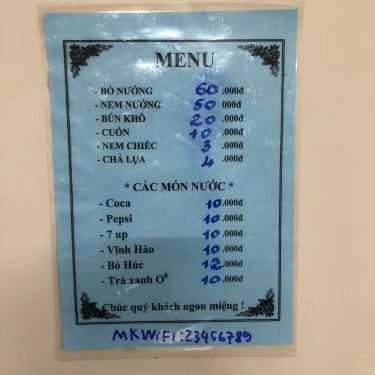 MENU
- BÒ NƯỚNG 60.000đ
- NEM NƯỚNG 50.000đ
- BÚN KHÔ 20.000đ
- CUỐN 10.000đ
- NEM CHIẾC 3.000đ
- CHẢ LỤA 4.000đ
* CÁC MÓN NƯỚC *
- Coca 10.000đ
- Pepsi 10.000đ
- 7 up 10.000đ
- Vĩnh Hảo 10.000đ
- Bò Húc 12.000đ
- Trà xanh O⁰ 10.000đ
Chúc quý khách ngon miệng !
MKWiFi:23456789